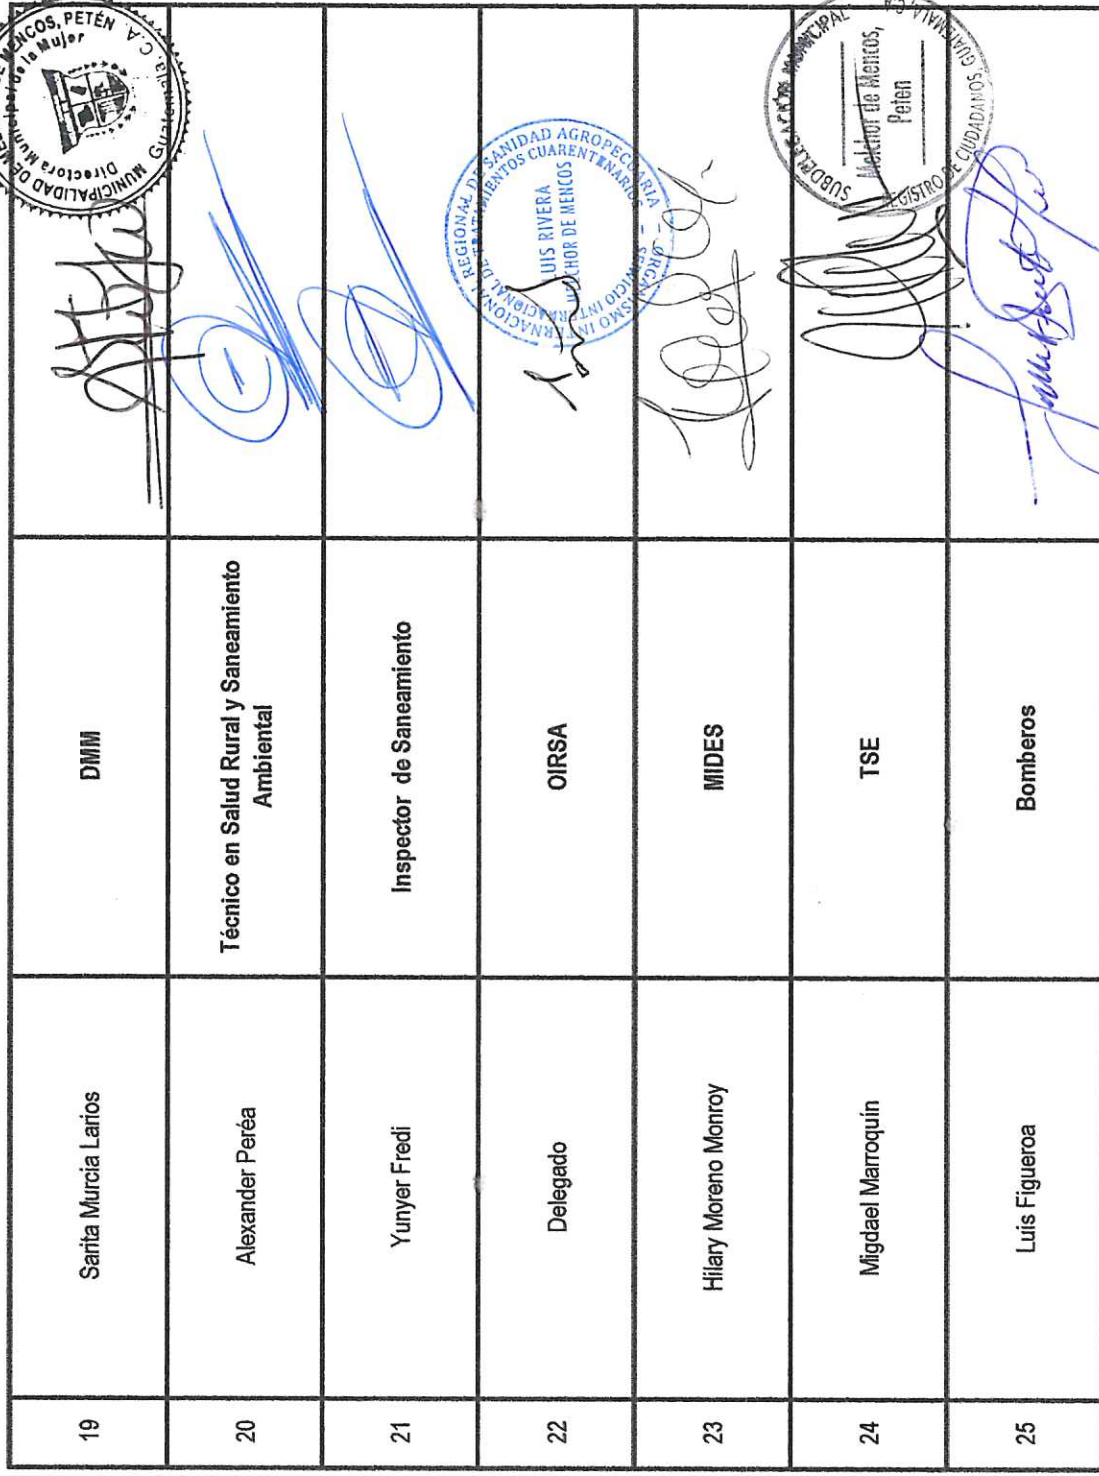 19
Sarita Murcia Larios
DMM
MUNICIPALIDAD DE MENCOS, PETÉN
Directora Municipal de la Mujer
Guatemala, C.A.
20
Alexander Peréa
Técnico en Salud Rural y Saneamiento
Ambiental
21
Yunyer Fredi
Inspector de Saneamiento
22
Delegado
OIRSA
ORGANISMO INTERNACIONAL REGIONAL DE SANIDAD AGROPECUARIA
SERVICIO INTERNACIONAL DE TRATAMIENTOS CUARENTENARIOS
LUIS RIVERA
MELCHOR DE MENCOS
23
Hilary Moreno Monroy
MIDES
24
Migdael Marroquín
TSE
SUBDELEGACIÓN MUNICIPAL
Melchor de Mencos,
Peten
REGISTRO DE CIUDADANOS, GUATEMALA, C.A.
25
Luis Figueroa
Bomberos